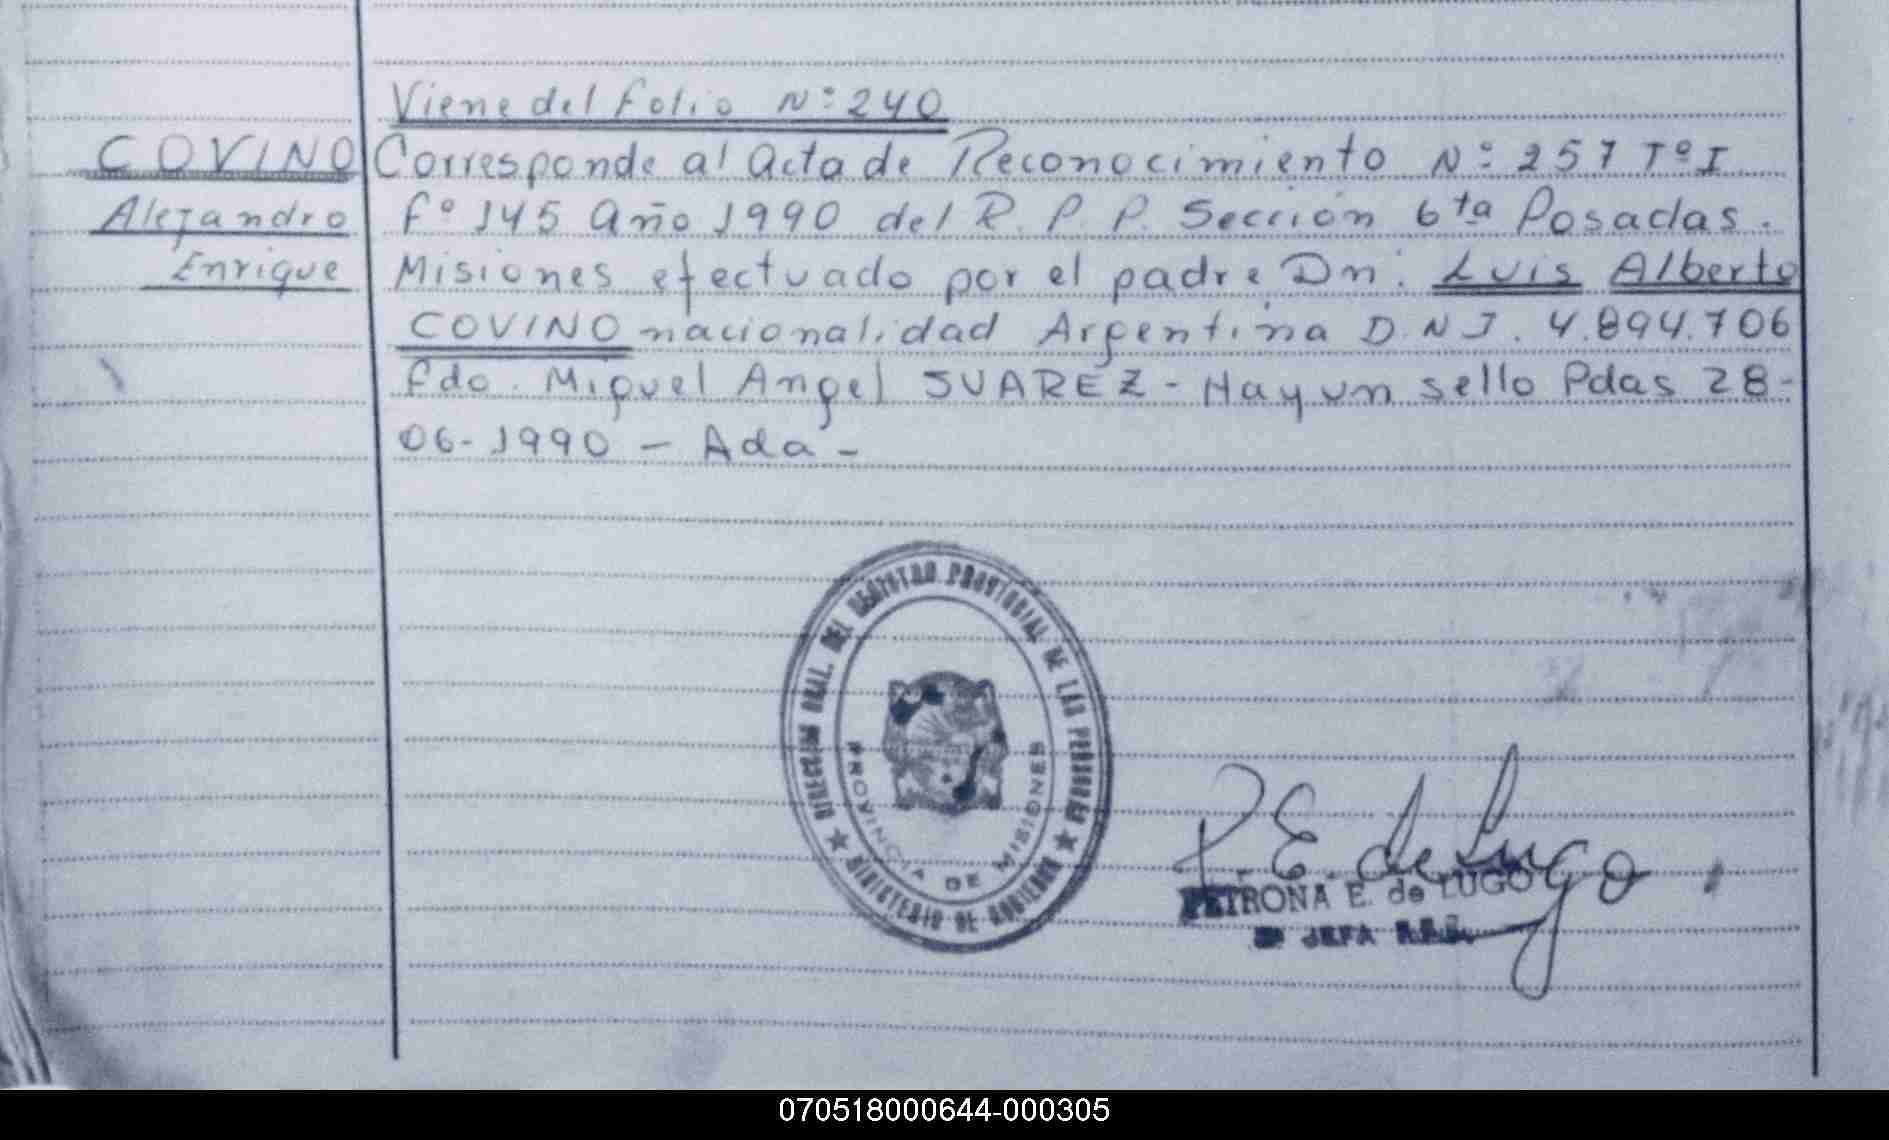 Viene del folio Nº 240
COVINO Corresponde al Acta de Reconocimiento Nº 257 Tº I
Alejandro fº 145 Año 1990 del R. P. P. Sección 6ta Posadas.
Enrique Misiones efectuado por el padre Dn. Luis Alberto
COVINO nacionalidad Argentina D.N.I. 4.894.706
fdo. Miguel Angel SUAREZ - Hay un sello Pdas 28-
06-1990 - Ada -
DIRECCION GRAL. DEL REGISTRO PROVINCIAL DE LAS PERSONAS
MINISTERIO DE GOBIERNO
PROVINCIA DE MISIONES
P. E. de Lugo
PETRONA E. de LUGO
JEFA
070518000644-000305